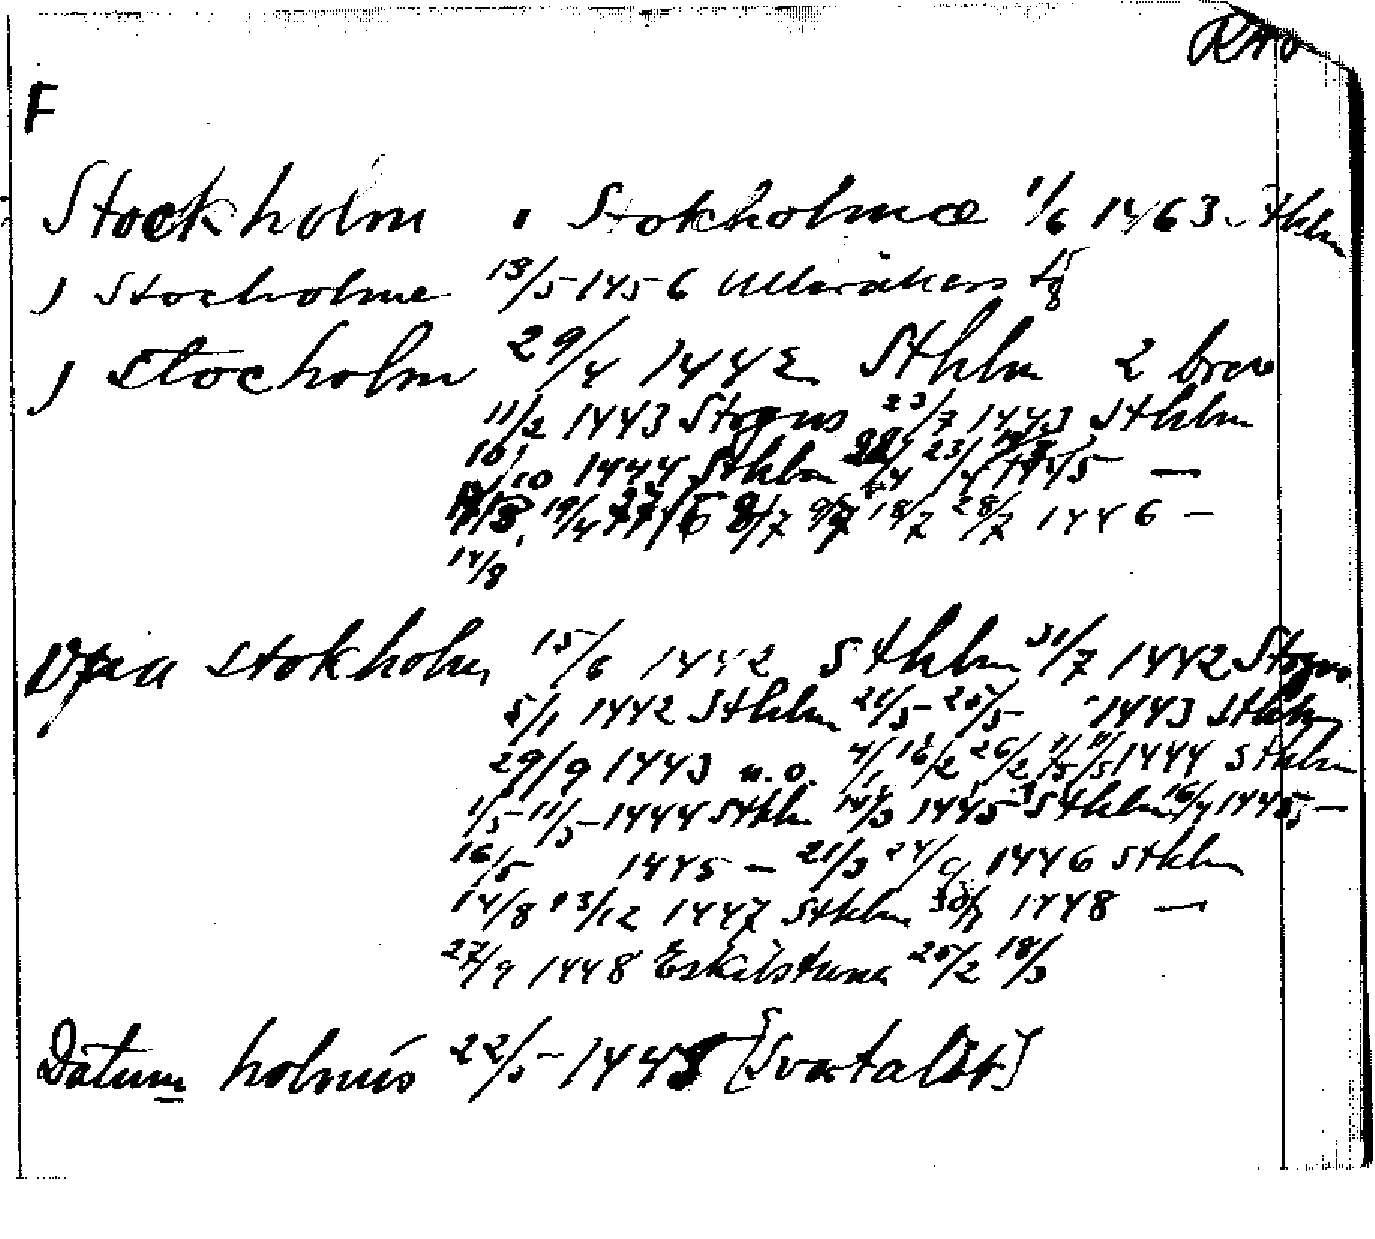 F
Stockholm . Stokholmæ 1/6 1463 Sthlm
) Stocholme 13/5 1456 Ulleråkers
) Stocholm 29/4 1442 Sthlm 2 brev
11/2 1443 Stegus 23/7 1443 Sthlm
10/10 1444 Sthlm 23/4 1445 —
19/4 8/7 9/7 18/7 28/7 1446 —
14/8
Vpa Stokholm 15/6 1442 Sthlm 31/7 1442
5/1 1442 Sthlm 21/5 25/5 1443 Sthlm
29/9 1443 u.o. 4/1 16/2 26/2 11/5 1444 Sthlm
1/5 11/5 1444 Sthlm 14/3 1445 Sthlm 1445 —
16/5 1445 — 21/3 24/9 1446 Sthlm
14/8 13/12 1447 Sthlm 1448 —
27/9 1448 Eskilstuna 25/2 18/3
Datum holmis 22/5 1445 [Svartalöt]